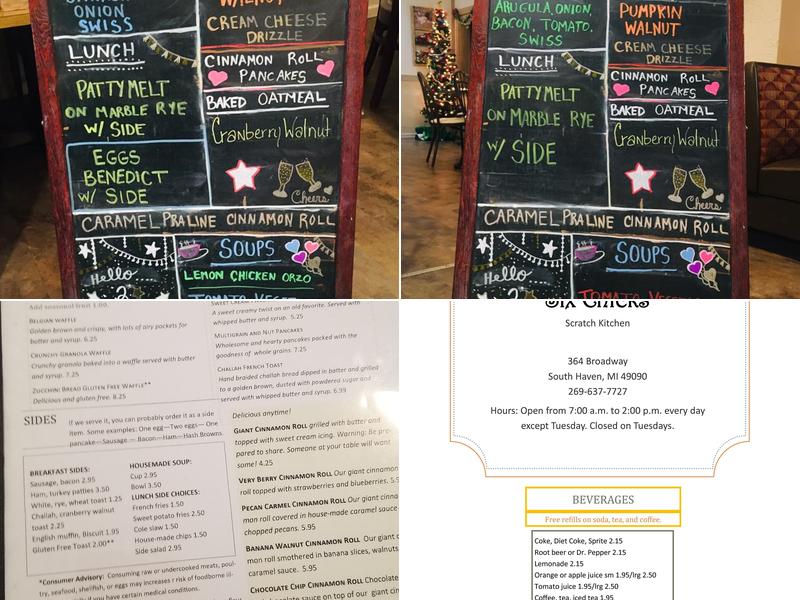 ONION
SWISS
LUNCH
PATTY MELT
ON MARBLE RYE
W/ SIDE
EGGS
BENEDICT
W/ SIDE
WALNUT
CREAM CHEESE
DRIZZLE
CINNAMON ROLL
PANCAKES
BAKED OATMEAL
Cranberry Walnut
Cheers
CARAMEL PRALINE CINNAMON ROLL
Hello
SOUPS
LEMON CHICKEN ORZO
ARUGULA, ONION,
BACON, TOMATO,
SWISS
LUNCH
PATTY MELT
ON MARBLE RYE
W/ SIDE
PUMPKIN
WALNUT
CREAM CHEESE
DRIZZLE
CINNAMON ROLL
PANCAKES
BAKED OATMEAL
Cranberry Walnut
Cheers
CARAMEL PRALINE CINNAMON ROLL
Hello
SOUPS
Add seasonal fruit 1.00.
BELGIAN WAFFLE
Golden brown and crispy, with lots of airy pockets for
butter and syrup. 6.25
CRUNCHY GRANOLA WAFFLE
Crunchy granola baked into a waffle served with butter
and syrup. 7.25
ZUCCHINI BREAD GLUTEN FREE WAFFLE**
Delicious and gluten free. 8.25
A sweet creamy twist on an old favorite. Served with
whipped butter and syrup. 5.25
MULTIGRAIN AND NUT PANCAKES
Wholesome and hearty pancakes packed with the
goodness of whole grains. 7.25
CHALLAH FRENCH TOAST
Hand braided challah bread dipped in batter and grilled
to a golden brown, dusted with powdered sugar and
served with whipped butter and syrup. 6.99
SIDES
If we serve it, you can probably order it as a side
item. Some examples: One egg—Two eggs— One
pancake—Sausage — Bacon—Ham—Hash Browns
BREAKFAST SIDES:
Sausage, bacon 2.95
Ham, turkey patties 3.50
White, rye, wheat toast 1.25
Challah, cranberry walnut
toast 2.25
English muffin, Biscuit 1.95
Gluten Free Toast 2.00**
HOUSEMADE SOUP:
Cup 2.95
Bowl 3.50
LUNCH SIDE CHOICES:
French fries 1.50
Sweet potato fries 2.50
Cole slaw 1.50
House-made chips 1.50
Side salad 2.95
*Consumer Advisory: Consuming raw or undercooked meats, poul-
try, seafood, shellfish, or eggs may increases r risk of foodborne ill-
Delicious anytime!
GIANT CINNAMON ROLL grilled with butter and
topped with sweet cream icing. Warning: Be pre-
pared to share. Someone at your table will want
some! 4.25
VERY BERRY CINNAMON ROLL Our giant cinnamon
roll topped with strawberries and blueberries.
PECAN CARMEL CINNAMON ROLL Our giant cinna-
mon roll covered in house-made caramel sauce
chopped pecans. 5.95
BANANA WALNUT CINNAMON ROLL Our giant
mon roll smothered in banana slices, walnuts
caramel sauce. 5.95
CHOCOLATE CHIP CINNAMON ROLL Chocolate
Scratch Kitchen
364 Broadway
South Haven, MI 49090
269-637-7727
Hours: Open from 7:00 a.m. to 2:00 p.m. every day
except Tuesday. Closed on Tuesdays.
BEVERAGES
Free refills on soda, tea, and coffee.
Coke, Diet Coke, Sprite 2.15
Root beer or Dr. Pepper 2.15
Lemonade 2.15
Orange or apple juice sm 1.95/lrg 2.50
Tomato juice 1.95/lrg 2.50
Coffee, tea, iced tea 1.95